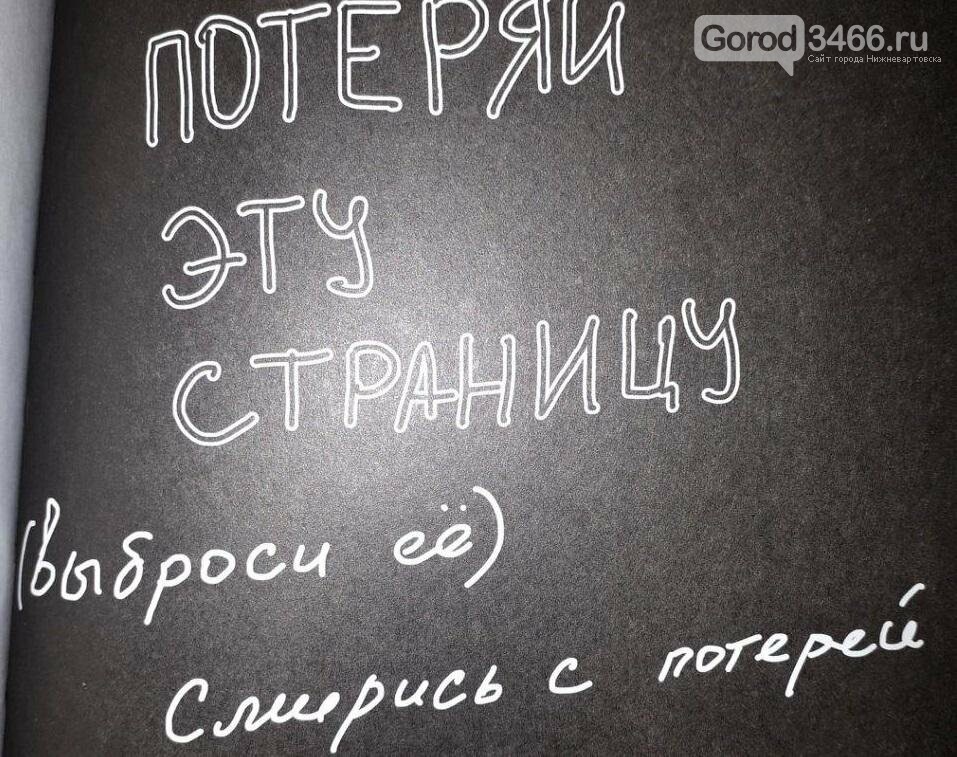 Gorod3466.ru
Сайт города Нижневартовска
ПОТЕРЯЙ
ЭТУ
СТРАНИЦУ
(выброси её)
Смирись с потерей